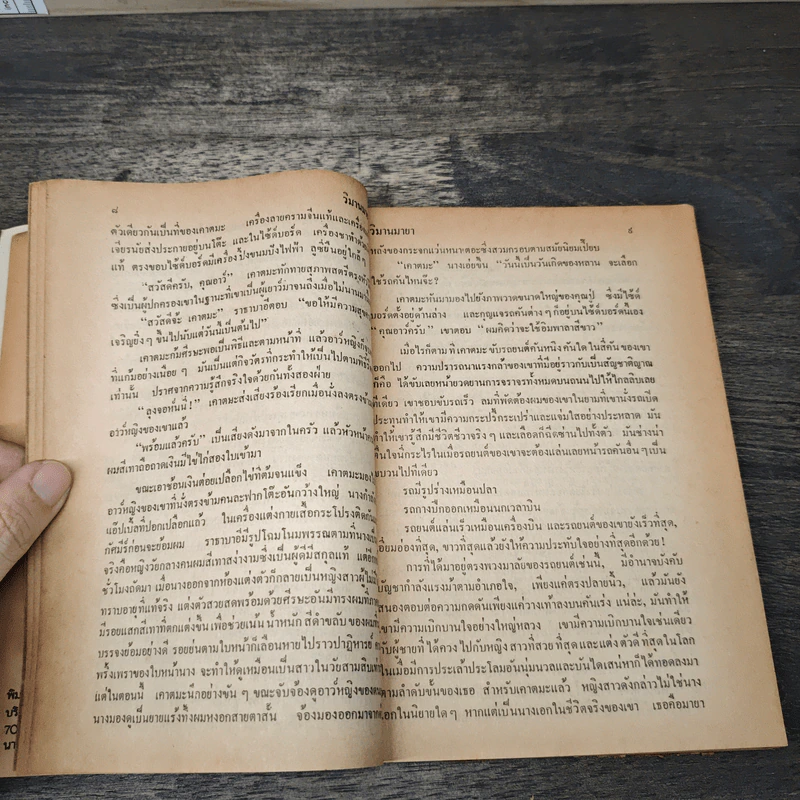 ๘
วิมานมา
ตัวเดียวกันเป็นที่ของเคาตมะ เครื่องลายครามจีนแท้และเครื่อง
เจียรนัยส่งประกายอยู่บนโต๊ะ และในไซ้ด์บอร์ด เครื่องชาทำด้วย
แท้ ตรงขอบไซ้ด์บอร์ดมีเครื่องปิ้งขนมปังไฟฟ้า ลูซี่ยืนอยู่ใกล้ๆ
“สวัสดีครับ, คุณอาว์” เคาตมะทักทายสุภาพสตรี
ซึ่งเป็นผู้ปกครองเขาในฐานะที่เขาเป็นผู้เยาว์มาจนถึงเมื่อไม่นานมา
“สวัสดีจ้ะ เคาตมะ” ราธาบาอีตอบ “ขอให้มีความสุข
เจริญยิ่งๆ ขึ้นไปนับแต่วันนี้เป็นต้นไป”
เคาตมะก้มศีรษะพอเป็นพิธีและตามหน้าที่ แล้วอาว์หญิงก็
ที่แก้มอย่างเนือยๆ มันเป็นแต่กิจวัตรที่กระทำให้เป็นไปตามพิธี
เท่านั้น ปราศจากความรู้สึกจริงใจด้วยกันทั้งสองฝ่าย
“ลุงจอห์นนี่!” เคาตมะส่งเสียงร้องเรียกเมื่อนั่งลงตรงข้าม
อาว์หญิงของเขาแล้ว
“พร้อมแล้วครับ” เป็นเสียงดังมาจากในครัว แล้วหัวหน้า
ผมสีเทาถือถาดเงินมีไข่ไก่สองใบเข้ามา
ขณะเอาช้อนเงินต่อยเปลือกไข่ที่ต้มจนแข็ง เคาตมะมอง
อาว์หญิงของเขาที่นั่งตรงข้ามคนละฟากโต๊ะอันกว้างใหญ่ นางกำลัง
แอ๊ปเปิ้ลที่ปอกเปลือกแล้ว ในเครื่องแต่งกายเสื้อกระโปรงติดกัน
กัศมีร์ก่อนจะย้อมผม ราธาบาอีมีรูปโฉมโนมพรรณตามที่นาง
จริงคือหญิงวัยกลางคนผมสีเทาสง่างามซึ่งเป็นผู้ดีมีสกุลแท้ แต่อีก
ชั่วโมงถัดมา เมื่อนางออกจากห้องแต่งตัวก็กลายเป็นหญิงสาวผู้ไม่มี
ทราบอายุที่แท้จริง แต่งตัวสวยสดพร้อมด้วยศีรษะอันมีทรงผมที่
มีรอยแสกสีเทาที่ตกแต่งขึ้น เพื่อช่วยเน้น น้ำหนัก สีดำขลับ ของผม
บรรจงย้อมอย่างดี รอยย่นตามใบหน้าก็เลือนหายไปราวปาฏิหารย์
พริ้งเพราของใบหน้านาง จะทำให้ดูเหมือนเป็นสาวในวัยสามสิบ
แต่ในตอนนี้ เคาตมะนึกอย่างขันๆ ขณะจับจ้องดูอาว์หญิงของตน
นางมองดูเป็นยายแร้งทึ้งผมหงอกสายตาสั้น จ้องมองออกมาจาก
วิมานมายา
๙
หลังของกระจกแว่นหนาเตอะซึ่งสวมกรอบตามสมัยนิยมเปี๊ยบ
“เคาตมะ” นางเอ่ยขึ้น “วันนี้เป็นวันเกิดของหลาน จะเลือก
ใช้รถคันไหนจ๊ะ?
เคาตมะหันมามองไปยังภาพวาดขนาดใหญ่ของคุณปู่ ซึ่งมีไซ้ด์
บอร์ดตั้งอยู่ด้านล่าง และกุญแจรถคันต่างๆ ก็อยู่บนไซ้ด์บอร์ดนี้เอง
“คุณอาว์ครับ” เขาตอบ “ผมคิดว่าจะใช้อิมพาลาสีขาว”
เมื่อไรก็ตาม ที่ เคาตมะ ขับรถยนต์คันหนึ่งคันใด ในสี่คัน ของเขา
ออกไป ความปรารถนาแรงกล้าของเขาที่มีอยู่ราวกับเป็นสัญชาติญาณ
ก็คือ ได้ขับเลยหน้ายวดยานการจราจรทั้งหมดบนถนนไปให้ไกลลิบเลย
ทีเดียว เขาชอบขับรถเร็ว ลมที่พัดต้องผมของเขาในยามที่เขานั่งรถเปิด
ประทุนทำให้เขามีความกระปรี้กระเปร่าและแจ่มใสอย่างประหลาด มัน
ทำให้เขารู้สึกมีชีวิตชีวาจริงๆ และเลือดก็ฉีดซ่านไปทั้งตัว มันช่างน่า
ใจนี่กระไรในเมื่อรถยนต์ของเขาจะต้องแล่นเลยหน้ารถคนอื่นๆ เป็น
ขบวนไปทีเดียว
รถมีรูปร่างเหมือนปลา
รถกางปีกออกเหมือนนกเวลาบิน
รถยนต์แล่นเร็วเหมือนเครื่องบิน และรถยนต์ของเขายังเร็วที่สุด,
เยี่ยมมองที่สุด, ขาวที่สุดแล้วยังให้ความประทับใจอย่างที่สุดอีกด้วย!
การที่ได้มาอยู่ตรงพวงมาลัยของรถยนต์เช่นนั้น, มีอำนาจบังคับ
บัญชากำลังแรงม้าตามอำเภอใจ, เพียงแค่ตรงปลายนิ้ว, แล้วมันยัง
สนองตอบต่อความกดดันเพียงแค่วางเท้าลงบนคันเร่ง แน่ล่ะ, มันทำให้
เขามีความเบิกบานใจอย่างใหญ่หลวง เขามีความเบิกบานใจเช่นเดียว
กับผู้ชายที่ ได้ควง ไปกับหญิง สาวที่สวย ที่สุด และแต่ง ตัวดี ที่สุด ในโลก
ในเมื่อมีการประเล้าประโลมอันนุ่มนวลและบันไดเสน่หาก็ได้ทอดลงมา
ตามลำดับขั้นของเธอ สำหรับเคาตมะแล้ว หญิงสาวดังกล่าวไม่ใช่นาง
เอกในนิยายใดๆ หากแต่เป็นนางเอกในชีวิตจริงของเขา เธอคือมายา